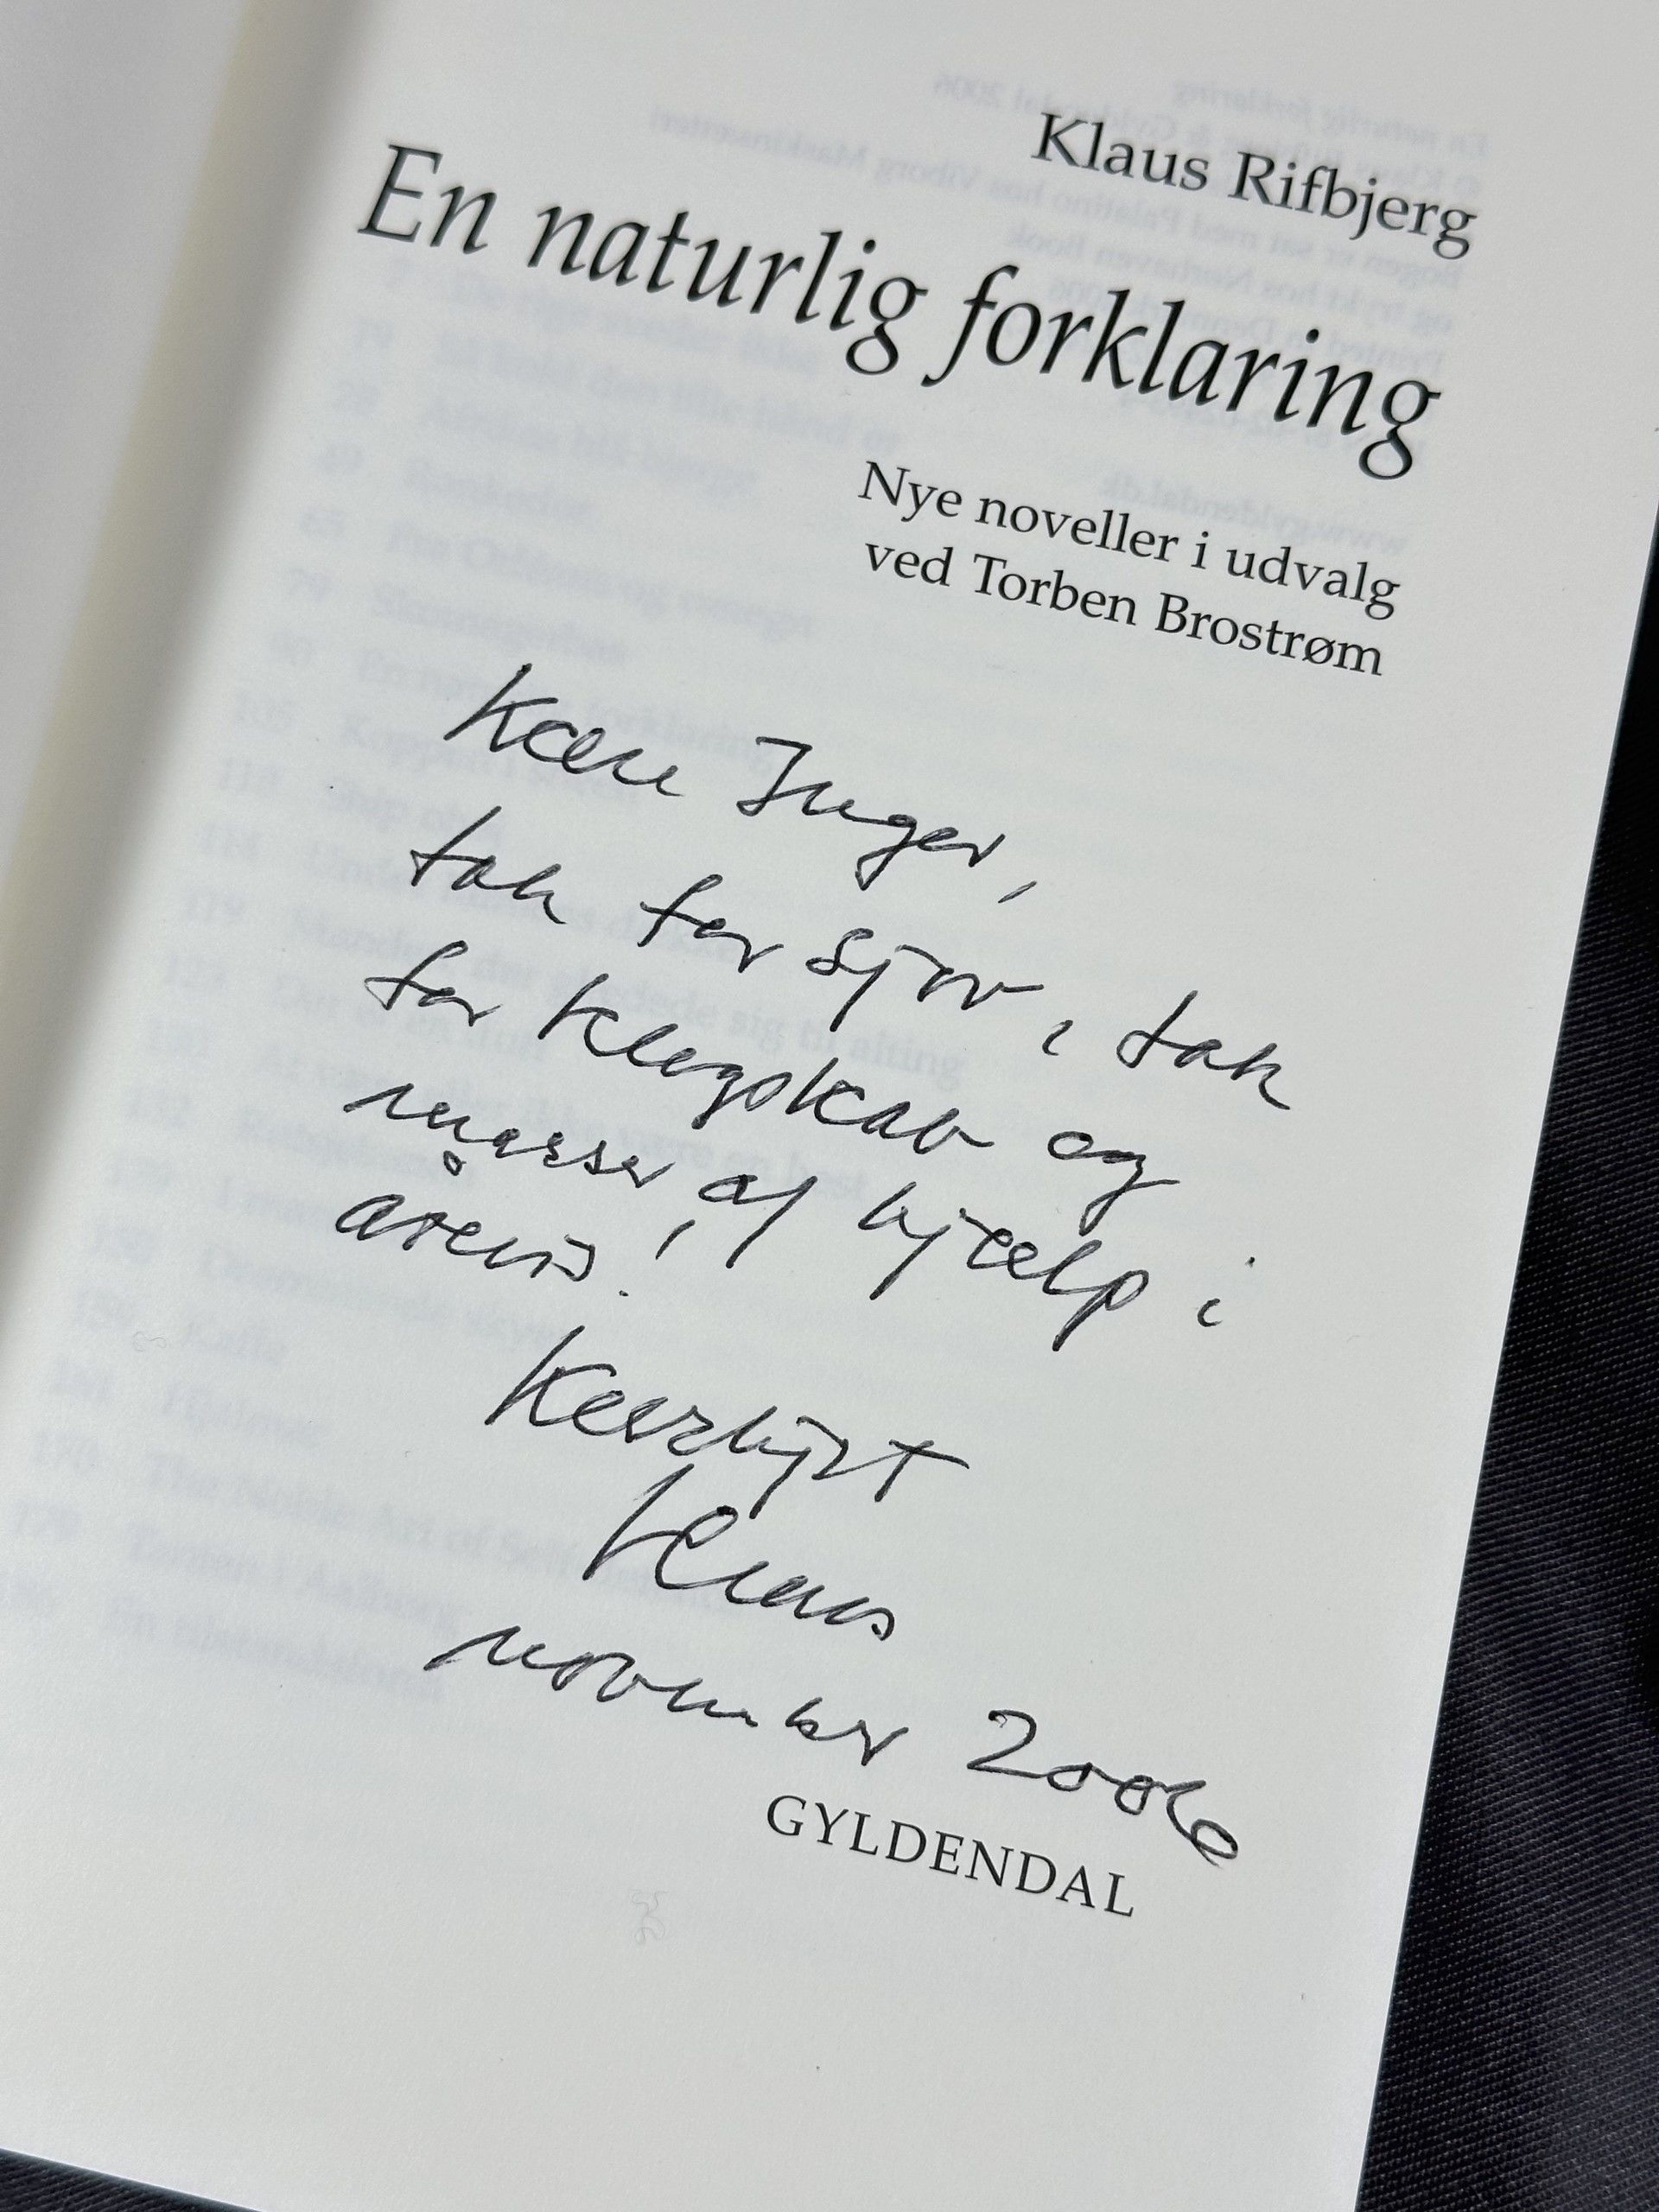 Klaus Rifbjerg
En naturlig forklaring
Nye noveller i udvalg
ved Torben Brostrøm
Kære Inger,
tak for sjov, tak
for klogskab og
masser af hjælp i
årevis!
Kærligst
Klaus
november 2006
GYLDENDAL